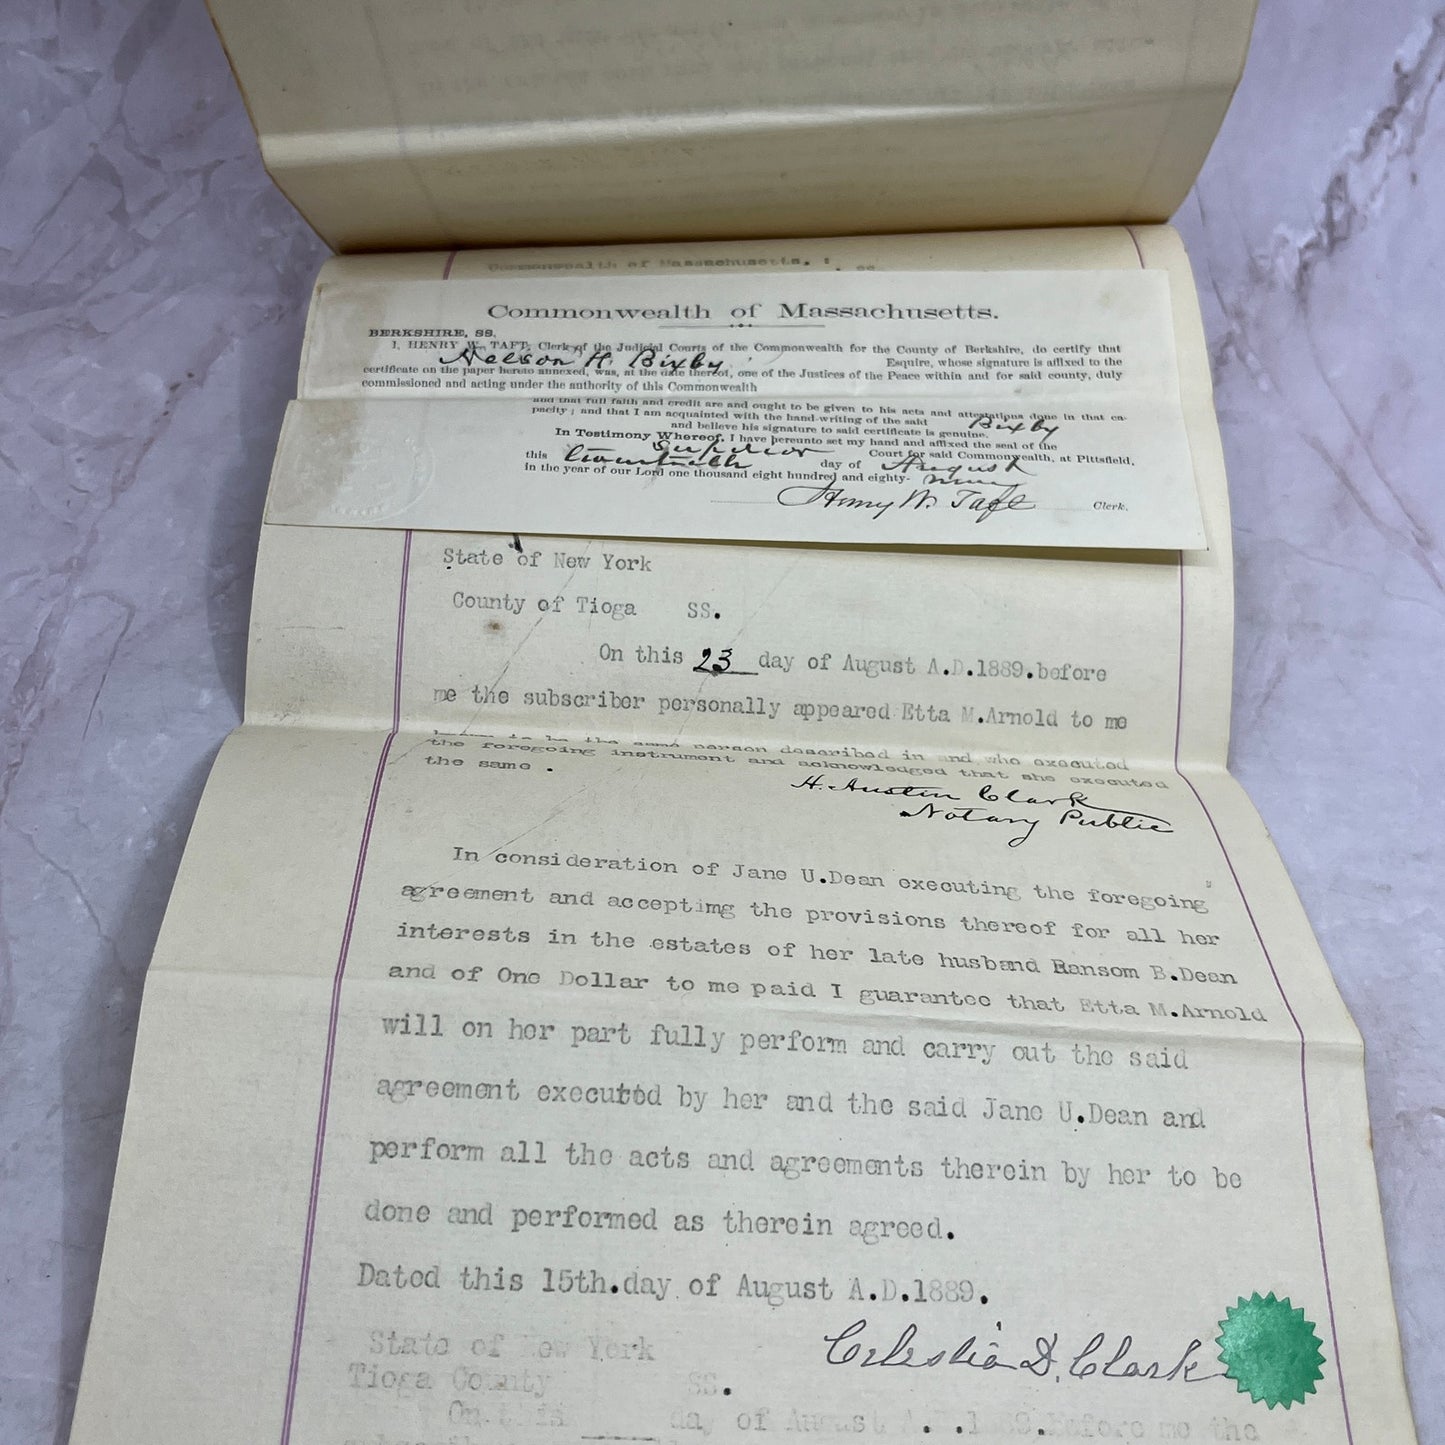 Commonwealth of Massachusetts. :
ss.
Commonwealth of Massachusetts.
BERKSHIRE, SS.
I, HENRY W. TAFT, Clerk of the Judicial Courts of the Commonwealth for the County of Berkshire, do certify that
Nelson H. Bixby Esquire, whose signature is affixed to the
certificate on the paper hereto annexed, was, at the date thereof, one of the Justices of the Peace within and for said county, duly
commissioned and acting under the authority of this Commonwealth
and that full faith and credit are and ought to be given to his acts and attestations done in that ca-
pacity; and that I am acquainted with the hand-writing of the said Bixby
and believe his signature to said certificate is genuine.
In Testimony Whereof, I have hereunto set my hand and affixed the seal of the
Superior Court for said Commonwealth, at Pittsfield,
this day of August
in the year of our Lord one thousand eight hundred and eighty- nine
Henry W. Taft Clerk.
State of New York
County of Tioga SS.
On this 23 day of August A.D.1889.before
me the subscriber personally appeared Etta M.Arnold to me
known to be the same person described in and who executed
the foregoing instrument and acknowledged that she executed
the same .
H. Austin Clark
Notary Public
In consideration of Jane U.Dean executing the foregoing
agreement and acceptimg the provisions thereof for all her
interests in the estates of her late husband Ransom B.Dean
and of One Dollar to me paid I guarantee that Etta M.Arnold
will on her part fully perform and carry out the said
agreement executed by her and the said Jane U.Dean and
perform all the acts and agreements therein by her to be
done and performed as therein agreed.
Dated this 15th.day of August A.D.1889.
Celestia D. Clark
State of New York
Tioga County SS.
On this day of August A.D.1889.Before me the